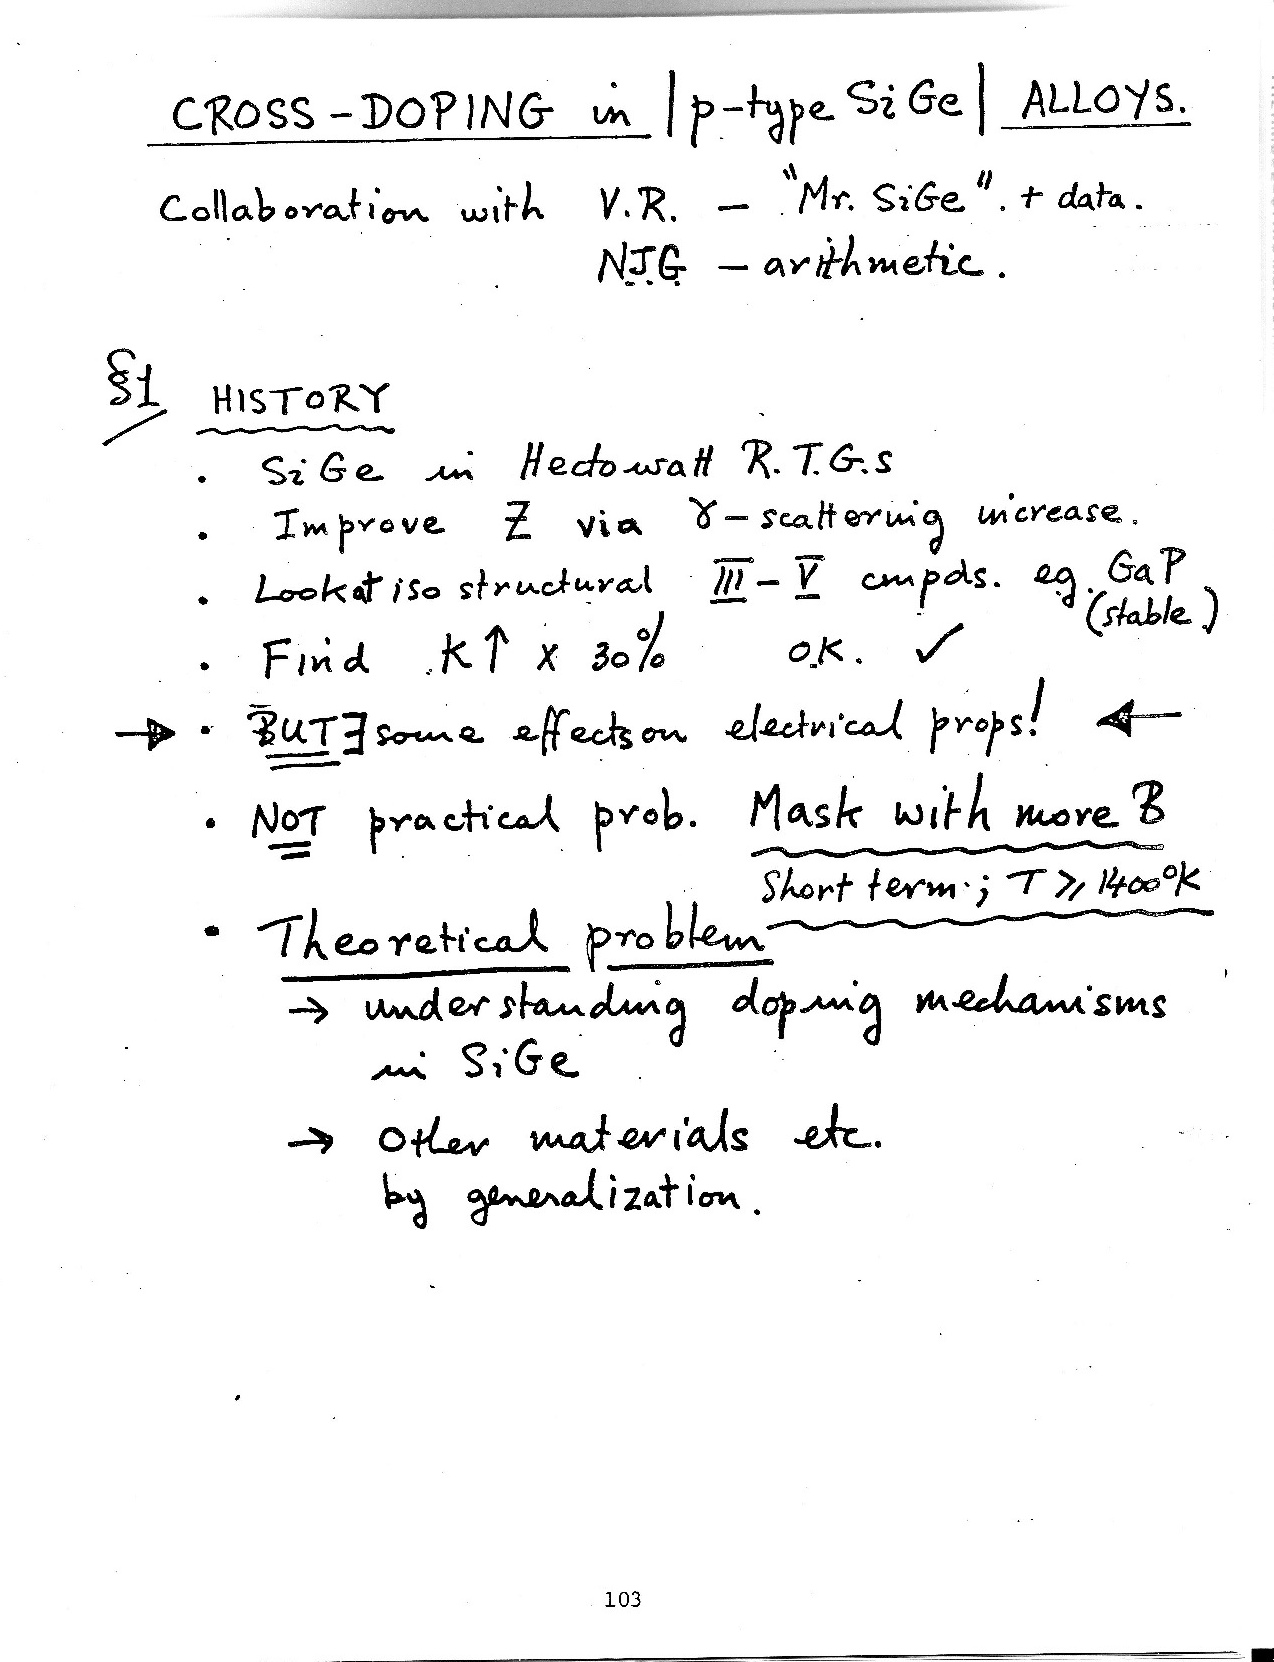 CROSS-DOPING in |p-type SiGe| ALLOYS.
Collaboration with V.R. - "Mr. SiGe". + data.
NJG - arithmetic.
§1 HISTORY
· SiGe in Hectowatt R.T.G.s
· Improve Z via γ-scattering increase.
· Look at isostructural III-V cmpds. eg. GaP
(stable)
· Find K↑ x 30% O.K. ✓
→ · BUT ∃ some effects on electrical props! ←
· NOT practical prob. Mask with more B
Short term.; T ≥ 1400°K
· Theoretical problem
→ understanding doping mechanisms
in SiGe
→ Other materials etc.
by generalization.
103